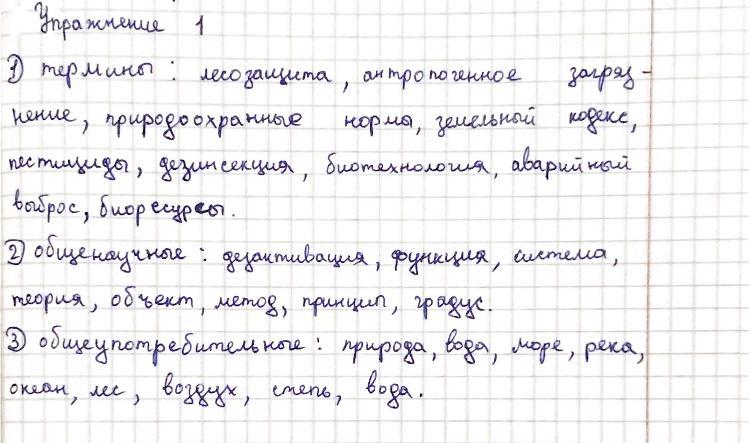 Упражнение 1
1) термины: лесозащита, антропогенное загряз-
нение, природоохранные нормы, земельный кодекс,
пестициды, дезинсекция, биотехнология, аварийный
выброс, биоресурсы.
2) общенаучные: дезактивация, функция, система,
теория, объект, метод, принцип, градус.
3) общеупотребительные: природа, вода, море, река,
океан, лес, воздух, степь, вода.